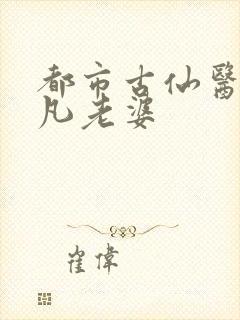 都市古仙醫
凡老婆
崔偉